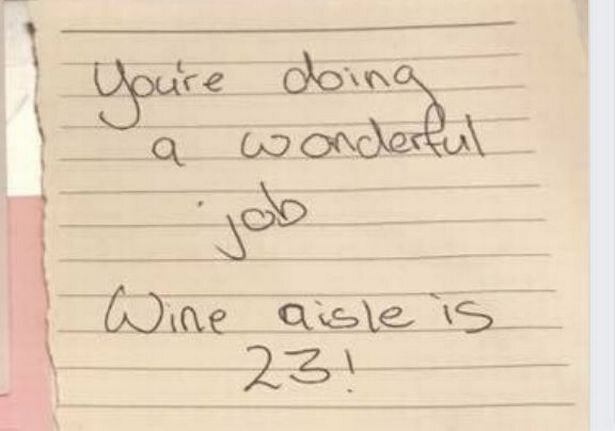 You're doing
a wonderful
job
Wine aisle is
23!